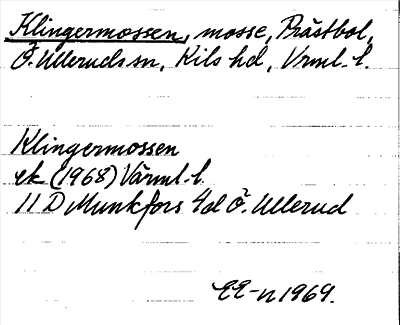 Klingermossen, mosse, Prästbol,
Ö. Ulleruds sn, Kils hd, Vrml. l.
Klingermossen
ek (1968) Värml. l.
11 D Munkfors 4d Ö. Ullerud
EE-n 1969.